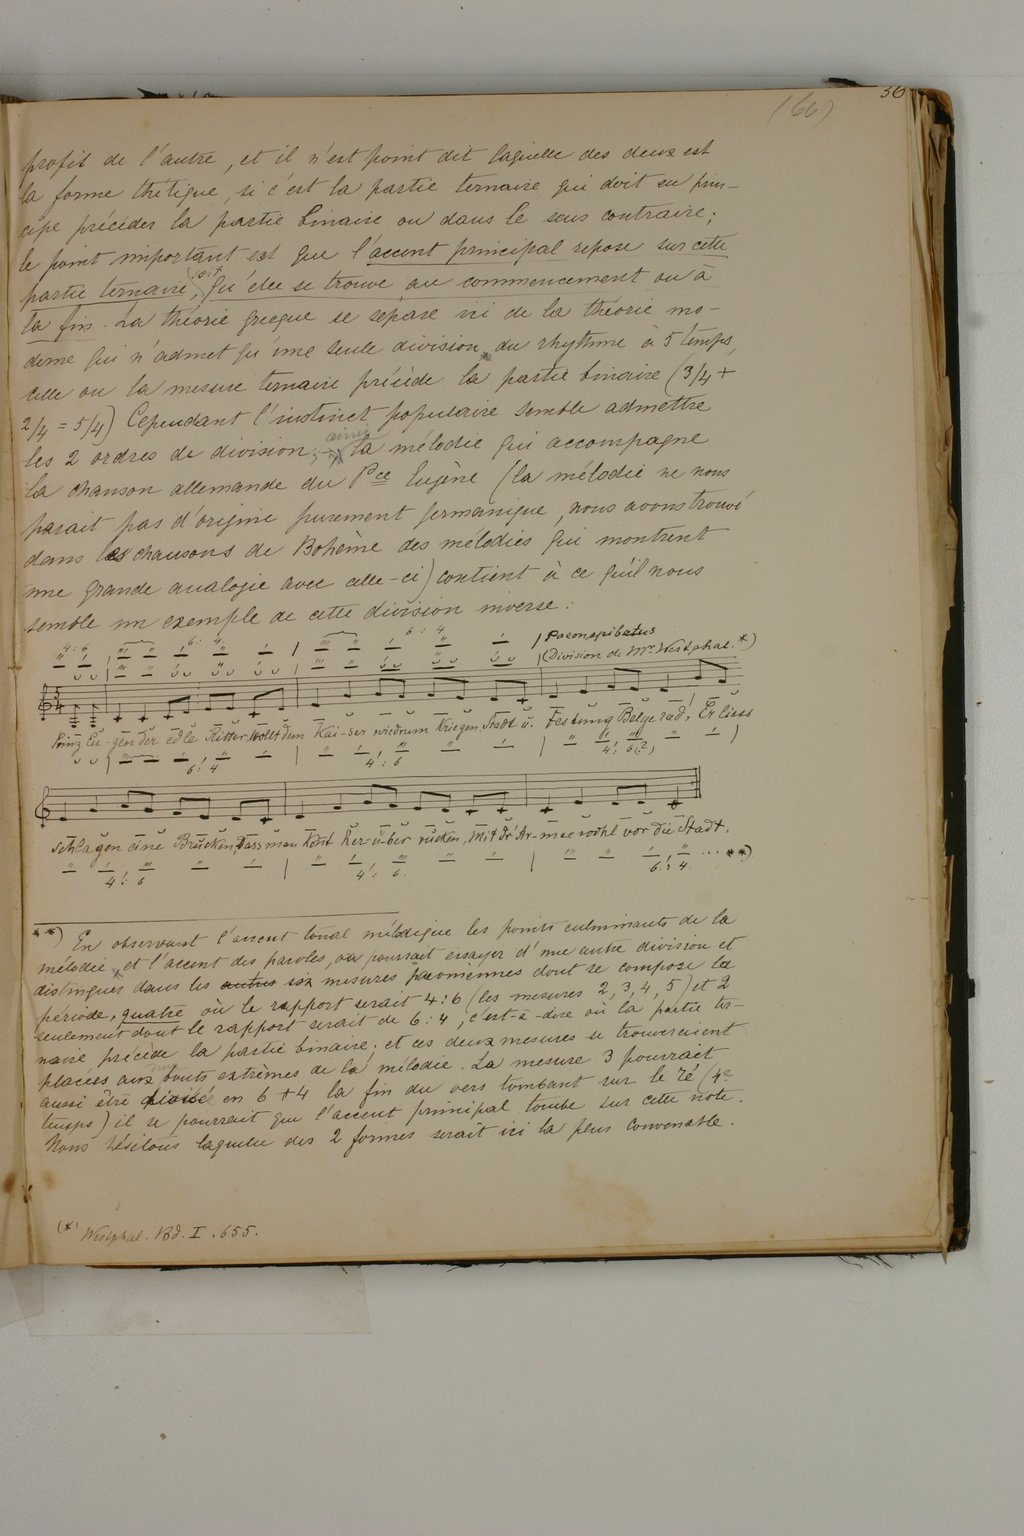 56
(66)
profit de l'autre, et il n'est point dit laquelle des deux est
la forme thétique, si c'est la partie ternaire qui doit en prin-
cipe précéder la partie binaire ou dans le sens contraire;
le point important est que l'accent principal repose sur cette
partie ternaire, soit qu'elle se trouve au commencement ou à
la fin. La théorie grecque se sépare ici de la théorie mo-
derne qui n'admet qu'une seule division du rhythme à 5 temps,
celle ou la mesure ternaire précède la partie binaire (3/4 +
2/4 = 5/4) Cependant l'instinct populaire semble admettre
les 2 ordres de division; ainsi la mélodie qui accompagne
la chanson allemande du Pce Eugène (la mélodie ne nous
parait pas d'origine purement germanique, nous avons trouvé
dans les chansons de Bohème des mélodies qui montrent
une grande analogie avec celle-ci) contient à ce qu'il nous
semble un exemple de cette division inverse:
4:6 6:4 6:4 Paeonepibatus
(Division de Mr. Westphal.*)
Prinz Eu-gen der edle Ritter, wollt dem Kai-ser wiedrum Kriegen Stadt u. Festung Belgerad! Er liess
6:4 4:6 4:6?
schlagen eine Brucken, Dass man kont her-ü-ber rucken, Mit dr' Ar-mee wohl vor die Stadt.
4:6 4:6 6:4 ...**)
**) En observant l'accent tonal mélodique les points culminants de la
mélodie, et l'accent des paroles, on pourrait essayer d'une autre division et
distinguer dans les autres six mesures paeoniennes dont se compose la
période, quatre où le rapport serait 4:6 (les mesures 2, 3, 4, 5) et 2
seulement dont le rapport serait de 6:4, c'est-à-dire où la partie ter-
naire précède la partie binaire; et ces deux mesures se trouveraient
placées aux bouts extrèmes de la mélodie. La mesure 3 pourrait
aussi être divisé en 6+4 la fin du vers tombant sur le ré (4e
temps) il se pourrait que l'accent principal tombe sur cette note.
Nous hésitons laquelle des 2 formes serait ici la plus convenable.
(*) Westphal. Bd. I. 655.